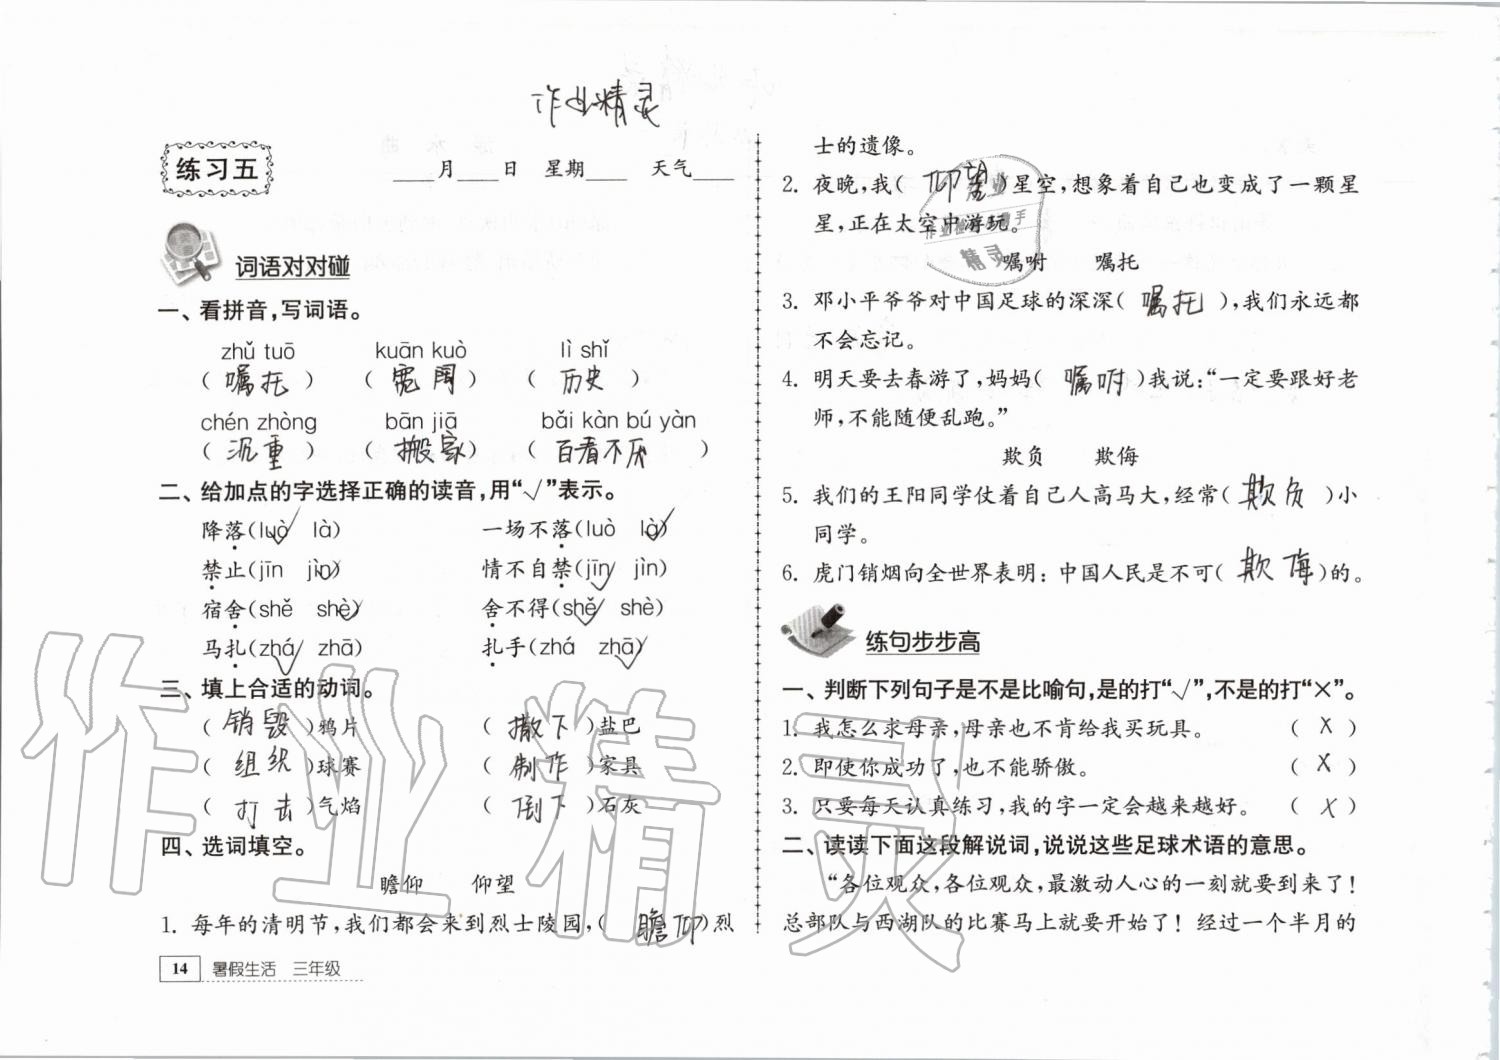 作业精灵
练习五
____月____日 星期____ 天气____
词语对对碰
一、看拼音,写词语。
zhǔ tuō kuān kuò lì shǐ
( 嘱托 ) ( 宽阔 ) ( 历史 )
chén zhòng bān jiā bǎi kàn bú yàn
( 沉重 ) ( 搬家 ) ( 百看不厌 )
二、给加点的字选择正确的读音,用“√”表示。
降落(luò√ là) 一场不落(luò là√)
禁止(jīn jìn√) 情不自禁(jīn√ jìn)
宿舍(shě shè√) 舍不得(shě√ shè)
马扎(zhá√ zhā) 扎手(zhá zhā√)
三、填上合适的动词。
( 销毁 )鸦片 ( 撒下 )盐巴
( 组织 )球赛 ( 制作 )家具
( 打击 )气焰 ( 倒下 )石灰
四、选词填空。
瞻仰 仰望
1. 每年的清明节,我们都会来到烈士陵园,( 瞻仰 )烈
14 暑假生活 三年级
士的遗像。
2. 夜晚,我( 仰望 )星空,想象着自己也变成了一颗星
星,正在太空中游玩。
嘱咐 嘱托
3. 邓小平爷爷对中国足球的深深( 嘱托 ),我们永远都
不会忘记。
4. 明天要去春游了,妈妈( 嘱咐 )我说:“一定要跟好老
师,不能随便乱跑。”
欺负 欺侮
5. 我们的王阳同学仗着自己人高马大,经常( 欺负 )小
同学。
6. 虎门销烟向全世界表明:中国人民是不可( 欺侮 )的。
练句步步高
一、判断下列句子是不是比喻句,是的打“√”,不是的打“×”。
1. 我怎么求母亲,母亲也不肯给我买玩具。 ( × )
2. 即使你成功了,也不能骄傲。 ( × )
3. 只要每天认真练习,我的字一定会越来越好。 ( × )
二、读读下面这段解说词,说说这些足球术语的意思。
“各位观众,各位观众,最激动人心的一刻就要到来了!
总部队与西湖队的比赛马上就要开始了!经过一个半月的
作业精灵